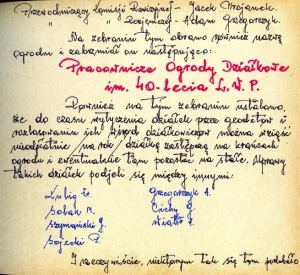 Przewodniczący Komisji Rewizyjnej - Jacek Trojanek.
" Rozjemczej - Adam Grzegorczyk.
Na zebraniu tym obrano również nazwę
ogrodu i zabrzmiał on następująco:
Pracownicze Ogrody Działkowe
im. 40-lecia L.W.P.
Również na tym zebraniu ustalono,
że do czasu wytyczenia działek przez geodetów i
rozlosowaniu ich wśród działkowiczów można wziąść
nieodpłatnie /na rok/ działkę zastępczą na krańcach
ogrodu i ewentualnie tam pozostać na stałe. Uprawy
takich działek podjęli się między innymi:
Grzegorczyk A.
Sobań M. Cichy
Szymański J.
Sajecki
I rzeczywiście, niektórym tak się tam podobało